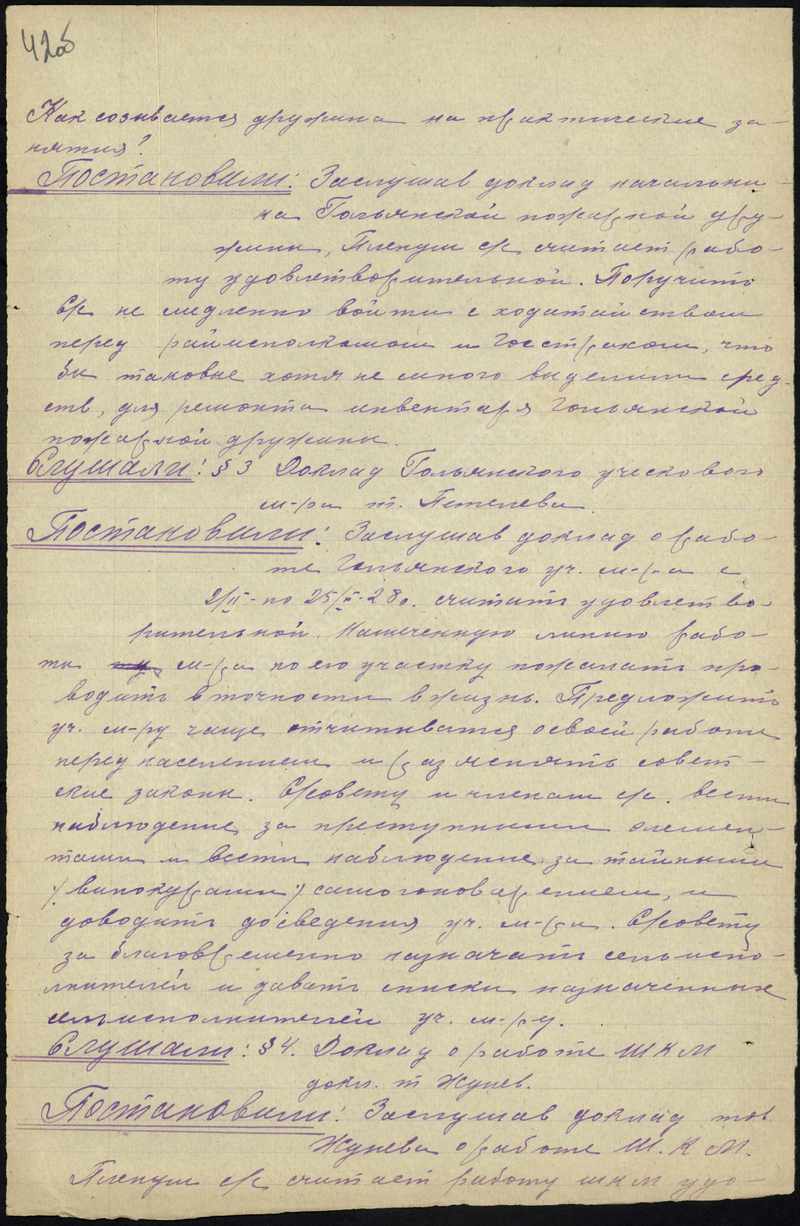 42об
Как созывается дружина на практические за-
нятия?
Постановили: Заслушав доклад начальни-
ка Гольянской пожарной дру-
жины, Пленум с/с считает рабо-
ту удовлетворительной. Поручить
С/с не медленно войти с ходатайством
перед райисполкомом и Госстрахом, что
бы таковые хотя не много выделили сред-
ств, для ремонта инвентаря Гольянской
пожарной дружины.
Слушали: § 3 Доклад Гольянского уческового
м-ра т. Пепелева.
Постановили: Заслушав доклад о рабо-
те Гольянского уч. м-ра с
2/II- по 25/II-28г. считать удовлетво-
рительной. Намеченную линию рабо-
ты м-ра по его участку пожелать про-
водить в точности в жизнь. Предложить
уч. м-ру чаще отчитыватся о своей работе
перед населением и раз яснять совет-
ские законы. С/совету и членам с/с. вести
наблюдение за преступными элемен-
тами и вести наблюдение за тайными
/винокурами/ самогоноварением, и
доводить до сведения уч. м-ра. С/совету
за благовременно назначать сельиспо-
лнителей и давать списки назначенных
сельисполнителей уч. м-ру.
Слушали: § 4. Доклад о работе ШКМ
докл. т Жунев.
Постановили: Заслушав доклад тов
Жунева о работе Ш.К.М.
Пленум с/с считает работу шкм удо-